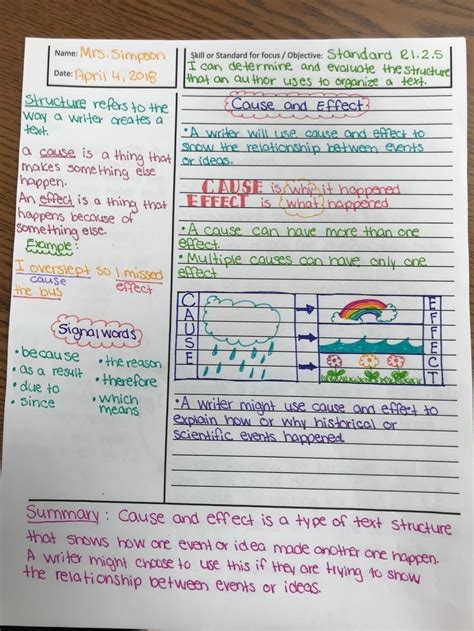 Name: Mrs. Simpson
Date: April 4, 2018
Skill or Standard for focus / Objective: Standard R1.2.5
I can determine and evaluate the structure
that an author uses to organize a text.
Structure refers to the
way a writer creates a
text.
a cause is a thing that
makes something else
happen.
An effect is a thing that
happens because of
something else.
Example:
I overslept so I missed
cause
the bus
effect
Signal words
• because
• as a result
• due to
• since
• the reason
• therefore
• which
means
Cause and Effect
• A writer will use cause and effect to
show the relationship between events
or ideas.
CAUSE is why it happened
EFFECT is what happened
• A cause can have more than one
effect.
• Multiple causes can have only one
effect
CAUSE
EFFECT
• A writer might use cause and effect to
explain how or why historical or
scientific events happened.
Summary: Cause and effect is a type of text structure
that shows how one event or idea made another one happen.
A writer might choose to use this if they are trying to show
the relationship between events or ideas.